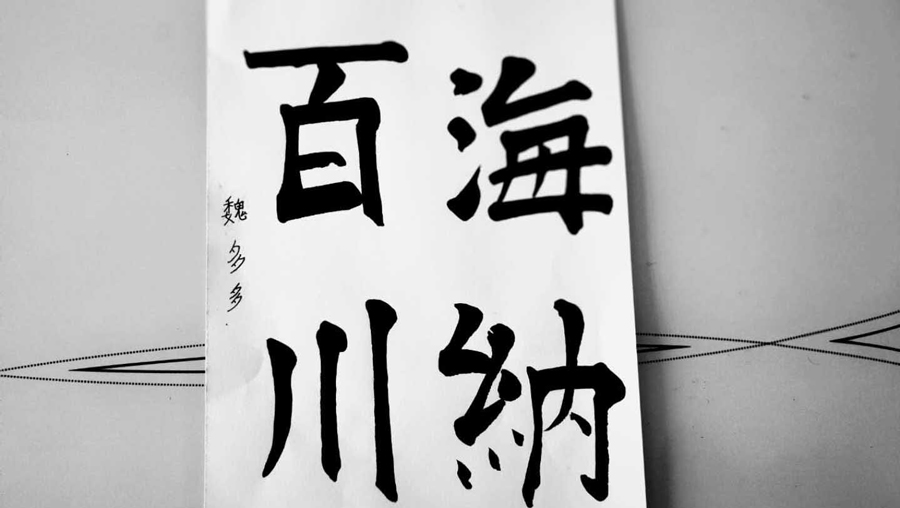 海納
百川
魏多多.